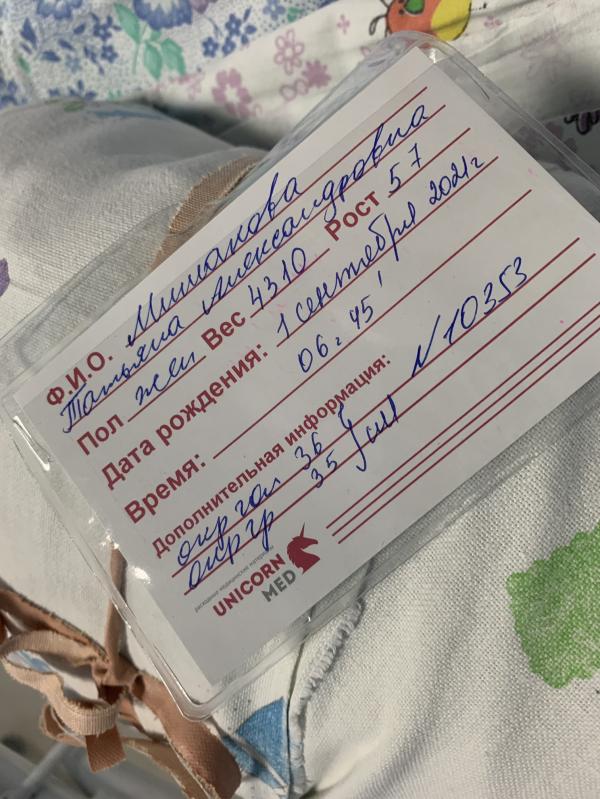 Ф.И.О. Мишакова
Татьяна Александровна
Пол жен Вес 4310 Рост 57
Дата рождения: 1 сентября 2021г
Время: 06 ч 45'
Дополнительная информация: N 10353
окр гол 36
окр гр 35 см
расходные медицинские материалы
UNICORN
MED